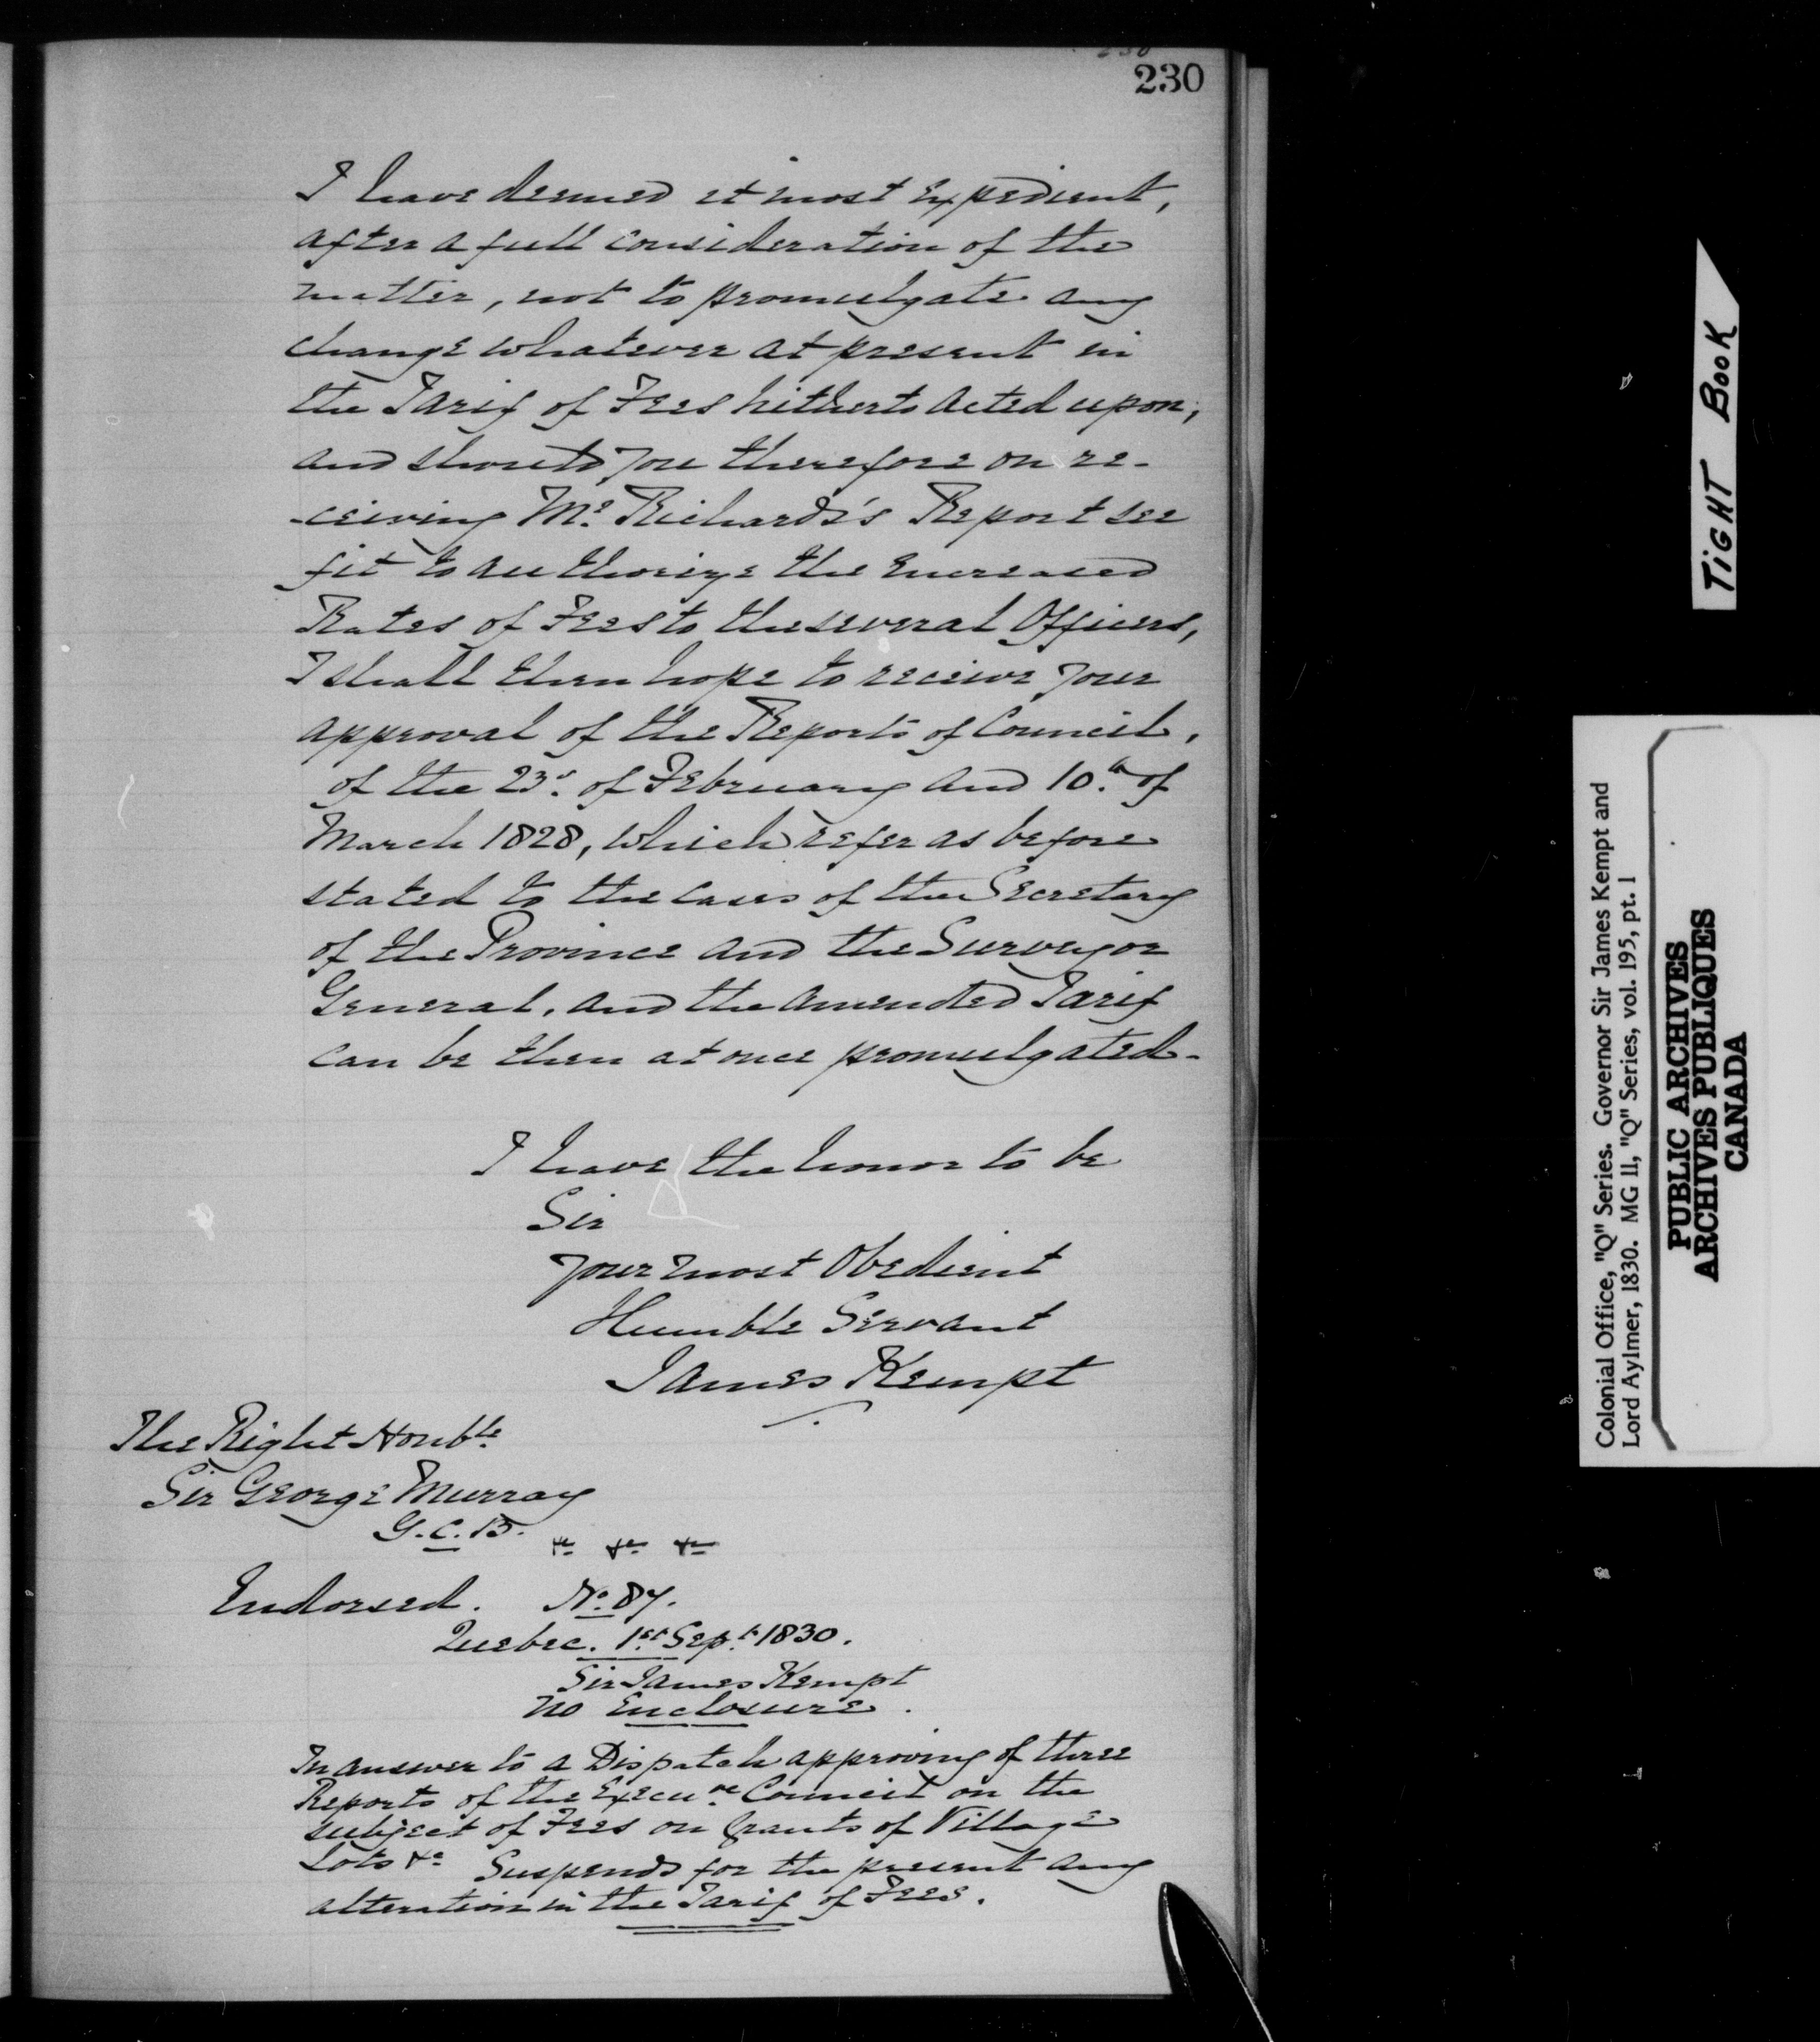 230
I have deemed it most Expedient,
after a full consideration of the
matter, not to promulgate any
change whatever at present in
the Tarif of Fees hitherto acted upon,
and should you therefore on re-
-ceiving Mr. Richards's Report see
fit to authorize the Encreased
Rates of Fees to the several Officers,
I shall then hope to receive your
approval of the Reports of Council,
of the 23d. of February and 10th. of
March 1828, which refer as before
stated to the cases of the Secretary
of the Province and the Surveyor
General, and the amended Tarif
can be then at once promulgated.
I have the honor to be
Sir
your most Obedient
Humble Servant
James Kempt
The Right Honble.
Sir George Murray
G.C.B.
&c &c &c
Endorsed. No. 87.
Quebec. 1st. Sept. 1830.
Sir James Kempt
No Enclosure.
In answer to a Dispatch approving of three
Reports of the Execuve. Council on the
subject of Fees on Grants of Village
Lots &c Suspends for the present any
alteration in the Tarif of Fees.
TIGHT BOOK
Colonial Office, "Q" Series. Governor Sir James Kempt and
Lord Aylmer, 1830. MG 11, "Q" Series, vol. 195, pt. 1
PUBLIC ARCHIVES
ARCHIVES PUBLIQUES
CANADA